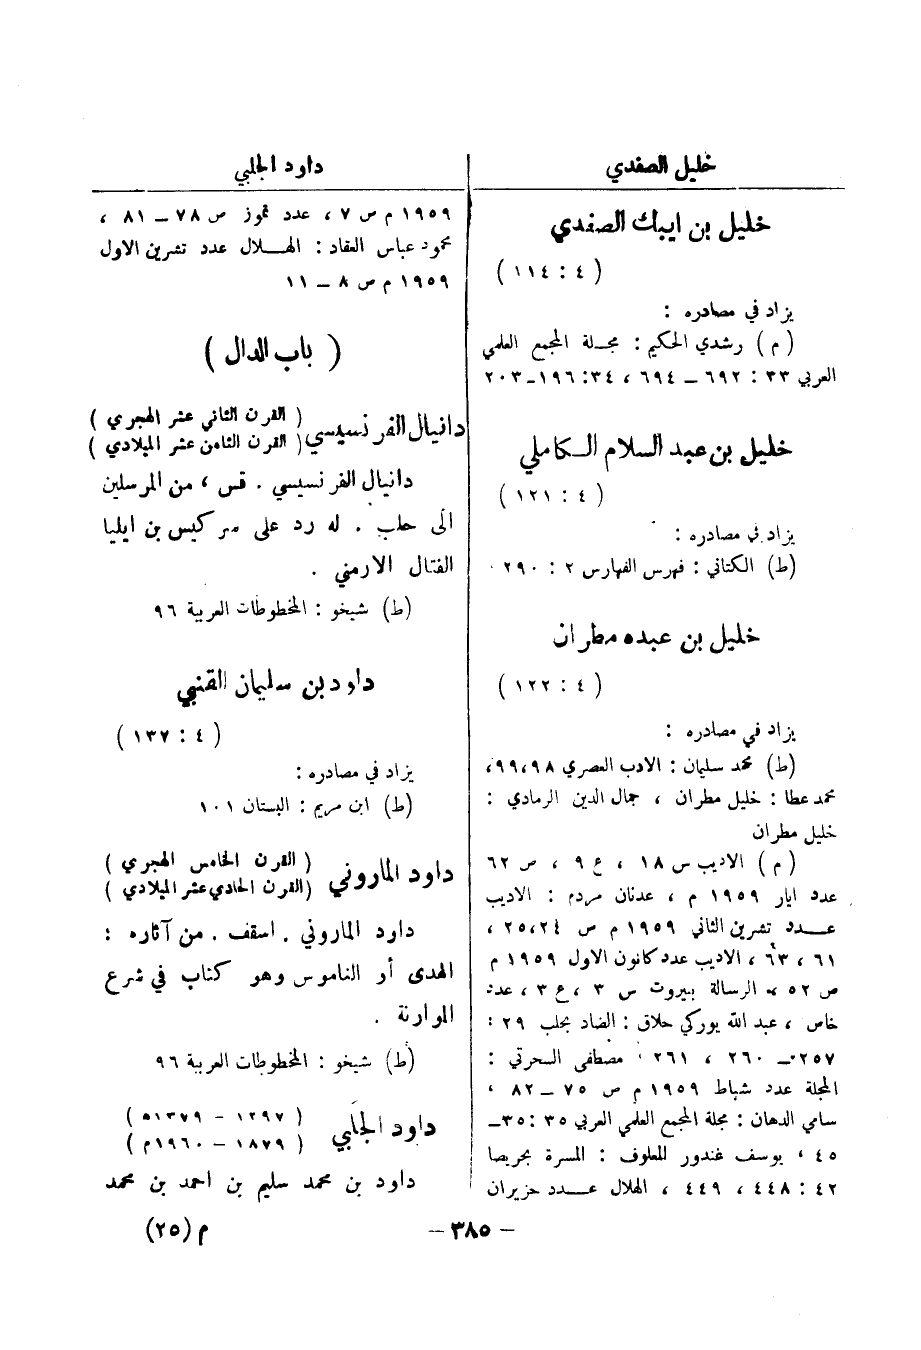 خليل الصفدي
خليل بن ايبك الصفدي
( ٤ : ١١٤ )
يزاد في مصادره :
( م ) رشدي الحكيم : مجلة المجمع العلمي
العربي ٣٣ : ٦٩٢ – ٦٩٤ ، ٣٤ : ١٩٦ – ٢٠٣
خليل بن عبد السلام الكاملي
( ٤ : ١٢١ )
يزاد في مصادره :
(ط) الكتاني : فهرس الفهارس ٢ : ٢٩٠
خليل بن عبده مطران
( ٤ : ١٢٢ )
يزاد في مصادره :
(ط) محمد سليمان : الادب العصري ٩٨ ، ٩٩ ،
محمد عطا : خليل مطران ، جمال الدين الرمادي :
خليل مطران
( م ) الاديب س ١٨ ، ع ٩ ، ص ٦٢
عدد ايار ١٩٥٩ م ، عدنان مردم : الاديب
عدد تشرين الثاني ١٩٥٩ م ص ٢٤ ، ٢٥ ،
٦١ ، ٦٣ ، الاديب عدد كانون الاول ١٩٥٩ م
ص ٥٢ ، الرسالة بيروت س ٣ ، ع ٣ ، عدد
خاص ، عبد الله يوركي حلاق : الضاد بحلب ٢٩ :
٢٥٧ – ٢٦٠ ، ٢٦١ ، مصطفى السحرتي :
المجلة عدد شباط ١٩٥٩ م ص ٧٥ – ٨٢ ،
سامي الدهان : مجلة المجمع العلمي العربي ٣٥ : ٣٥ –
٤٥ ، يوسف غندور المعلوف : المسرة بحريصا
٤٢ : ٤٤٨ ، ٤٤٩ ، الهلال عدد حزيران
داود الجلبي
١٩٥٩ م ص ٧ ، عدد تموز ص ٧٨ – ٨١ ،
محمود عباس العقاد : الهلال عدد تشرين الاول
١٩٥٩ م ص ٨ – ١١
( باب الدال )
دانيال الفرنسيسي ( القرن الثاني عشر الهجري )
( القرن الثامن عشر الميلادي )
دانيال الفرنسيسي . قس ، من المرسلين
الى حلب . له رد على سركيس بن ايليا
الفتال الارمني .
(ط) شيخو : المخطوطات العربية ٩٦
داود بن سليمان القنبي
( ٤ : ١٣٧ )
يزاد في مصادره :
(ط) ابن مريم : البستان ١٠١
داود الماروني ( القرن الخامس الهجري )
( القرن الحادي عشر الميلادي )
داود الماروني . اسقف . من آثاره :
الهدى أو الناموس وهو كتاب في شرع
الموارنة .
(ط) شيخو : المخطوطات العربية ٩٦
داود الجلبي ( ١٢٩٧ – ١٣٧٩ه )
( ١٨٧٩ – ١٩٦٠م )
داود بن محمد سليم بن احمد بن محمد
– ٣٨٥ –
م (٢٥)